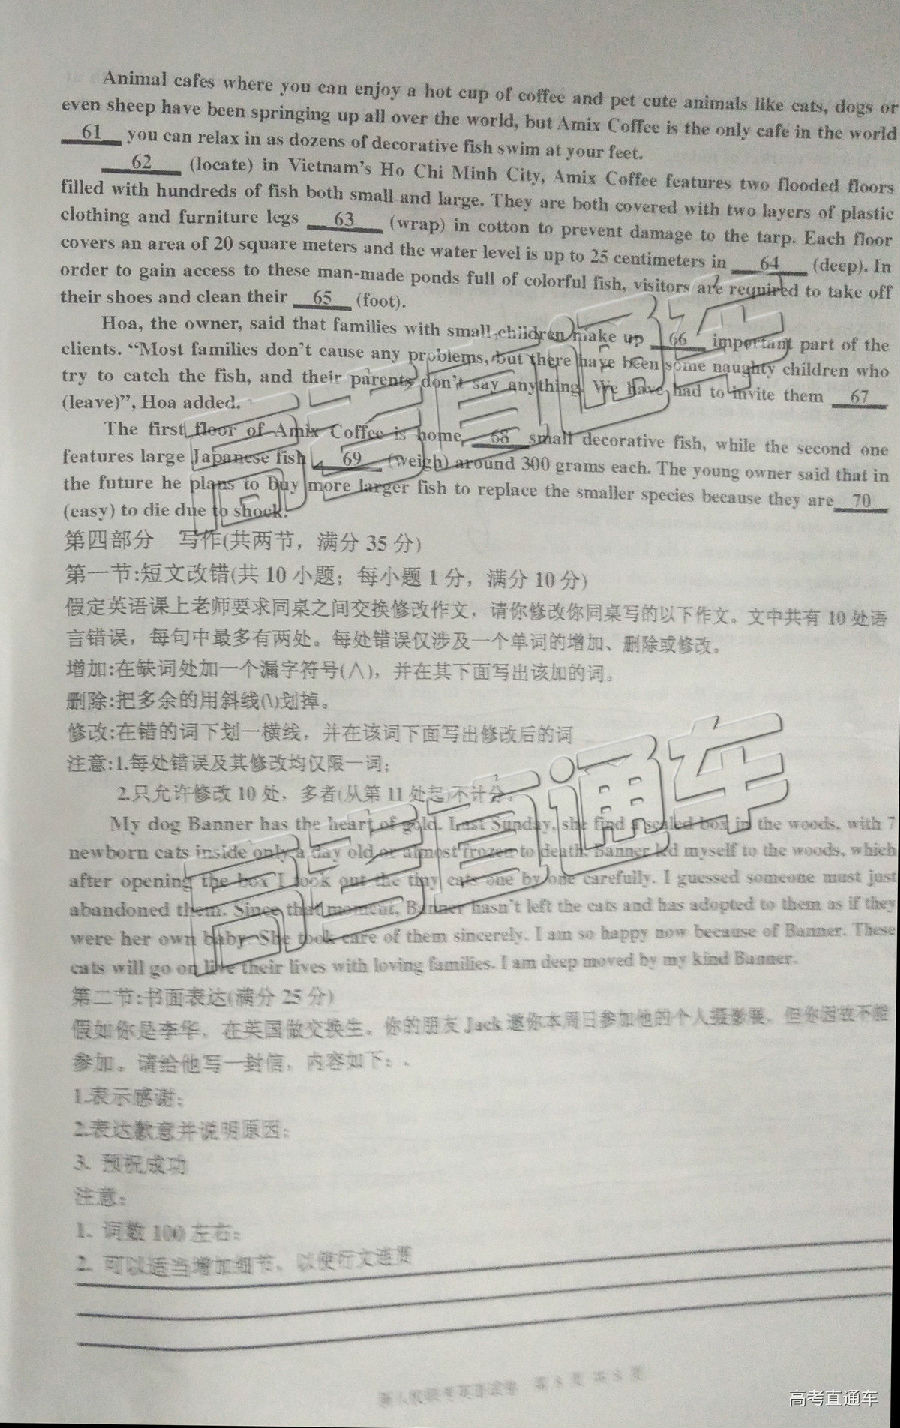 Animal cafes where you can enjoy a hot cup of coffee and pet cute animals like cats, dogs or
even sheep have been springing up all over the world, but Amix Coffee is the only cafe in the world
61 you can relax in as dozens of decorative fish swim at your feet.
62 (locate) in Vietnam's Ho Chi Minh City, Amix Coffee features two flooded floors
filled with hundreds of fish both small and large. They are both covered with two layers of plastic
clothing and furniture legs 63 (wrap) in cotton to prevent damage to the tarp. Each floor
covers an area of 20 square meters and the water level is up to 25 centimeters in 64 (deep). In
order to gain access to these man-made ponds full of colorful fish, visitors are required to take off
their shoes and clean their 65 (foot).
Hoa, the owner, said that families with small children make up 66 important part of the
clients. “Most families don't cause any problems, but there have been some naughty children who
try to catch the fish, and their parents don't say anything. We have had to invite them 67
(leave)”, Hoa added.
The first floor of Amix Coffee is home 68 small decorative fish, while the second one
features large Japanese fish, 69 (weigh) around 300 grams each. The young owner said that in
the future he plans to buy more larger fish to replace the smaller species because they are 70
(easy) to die due to shock.
第四部分 写作(共两节，满分 35 分)
第一节:短文改错(共 10 小题；每小题 1 分，满分 10 分)
假定英语课上老师要求同桌之间交换修改作文，请你修改你同桌写的以下作文。文中共有 10 处语
言错误，每句中最多有两处。每处错误仅涉及一个单词的增加、删除或修改。
增加:在缺词处加一个漏字符号(∧)，并在其下面写出该加的词。
删除:把多余的用斜线(\)划掉。
修改:在错的词下划一横线，并在该词下面写出修改后的词
注意:1.每处错误及其修改均仅限一词;
2.只允许修改 10 处，多者(从第 11 处起)不计分。
My dog Banner has the heart of gold. Last Sunday, she find a sealed box in the woods, with 7
newborn cats inside only a day old or almost frozen to death. Banner led myself to the woods, which
after opening the box I took out the tiny cats one by one carefully. I guessed someone must just
abandoned them. Since that moment, Banner hasn't left the cats and has adopted to them as if they
were her own baby. She took care of them sincerely. I am so happy now because of Banner. These
cats will go on live their lives with loving families. I am deep moved by my kind Banner.
第二节:书面表达(满分 25 分)
假如你是李华，在英国做交换生。你的朋友 Jack 邀你本周日参加他的个人摄影展，但你因故不能
参加。请给他写一封信，内容如下：
1.表示感谢;
2.表达歉意并说明原因;
3. 预祝成功
注意：
1. 词数 100 左右;
2. 可以适当增加细节，以使行文连贯
高考直通车
高考直通车
高考直通车